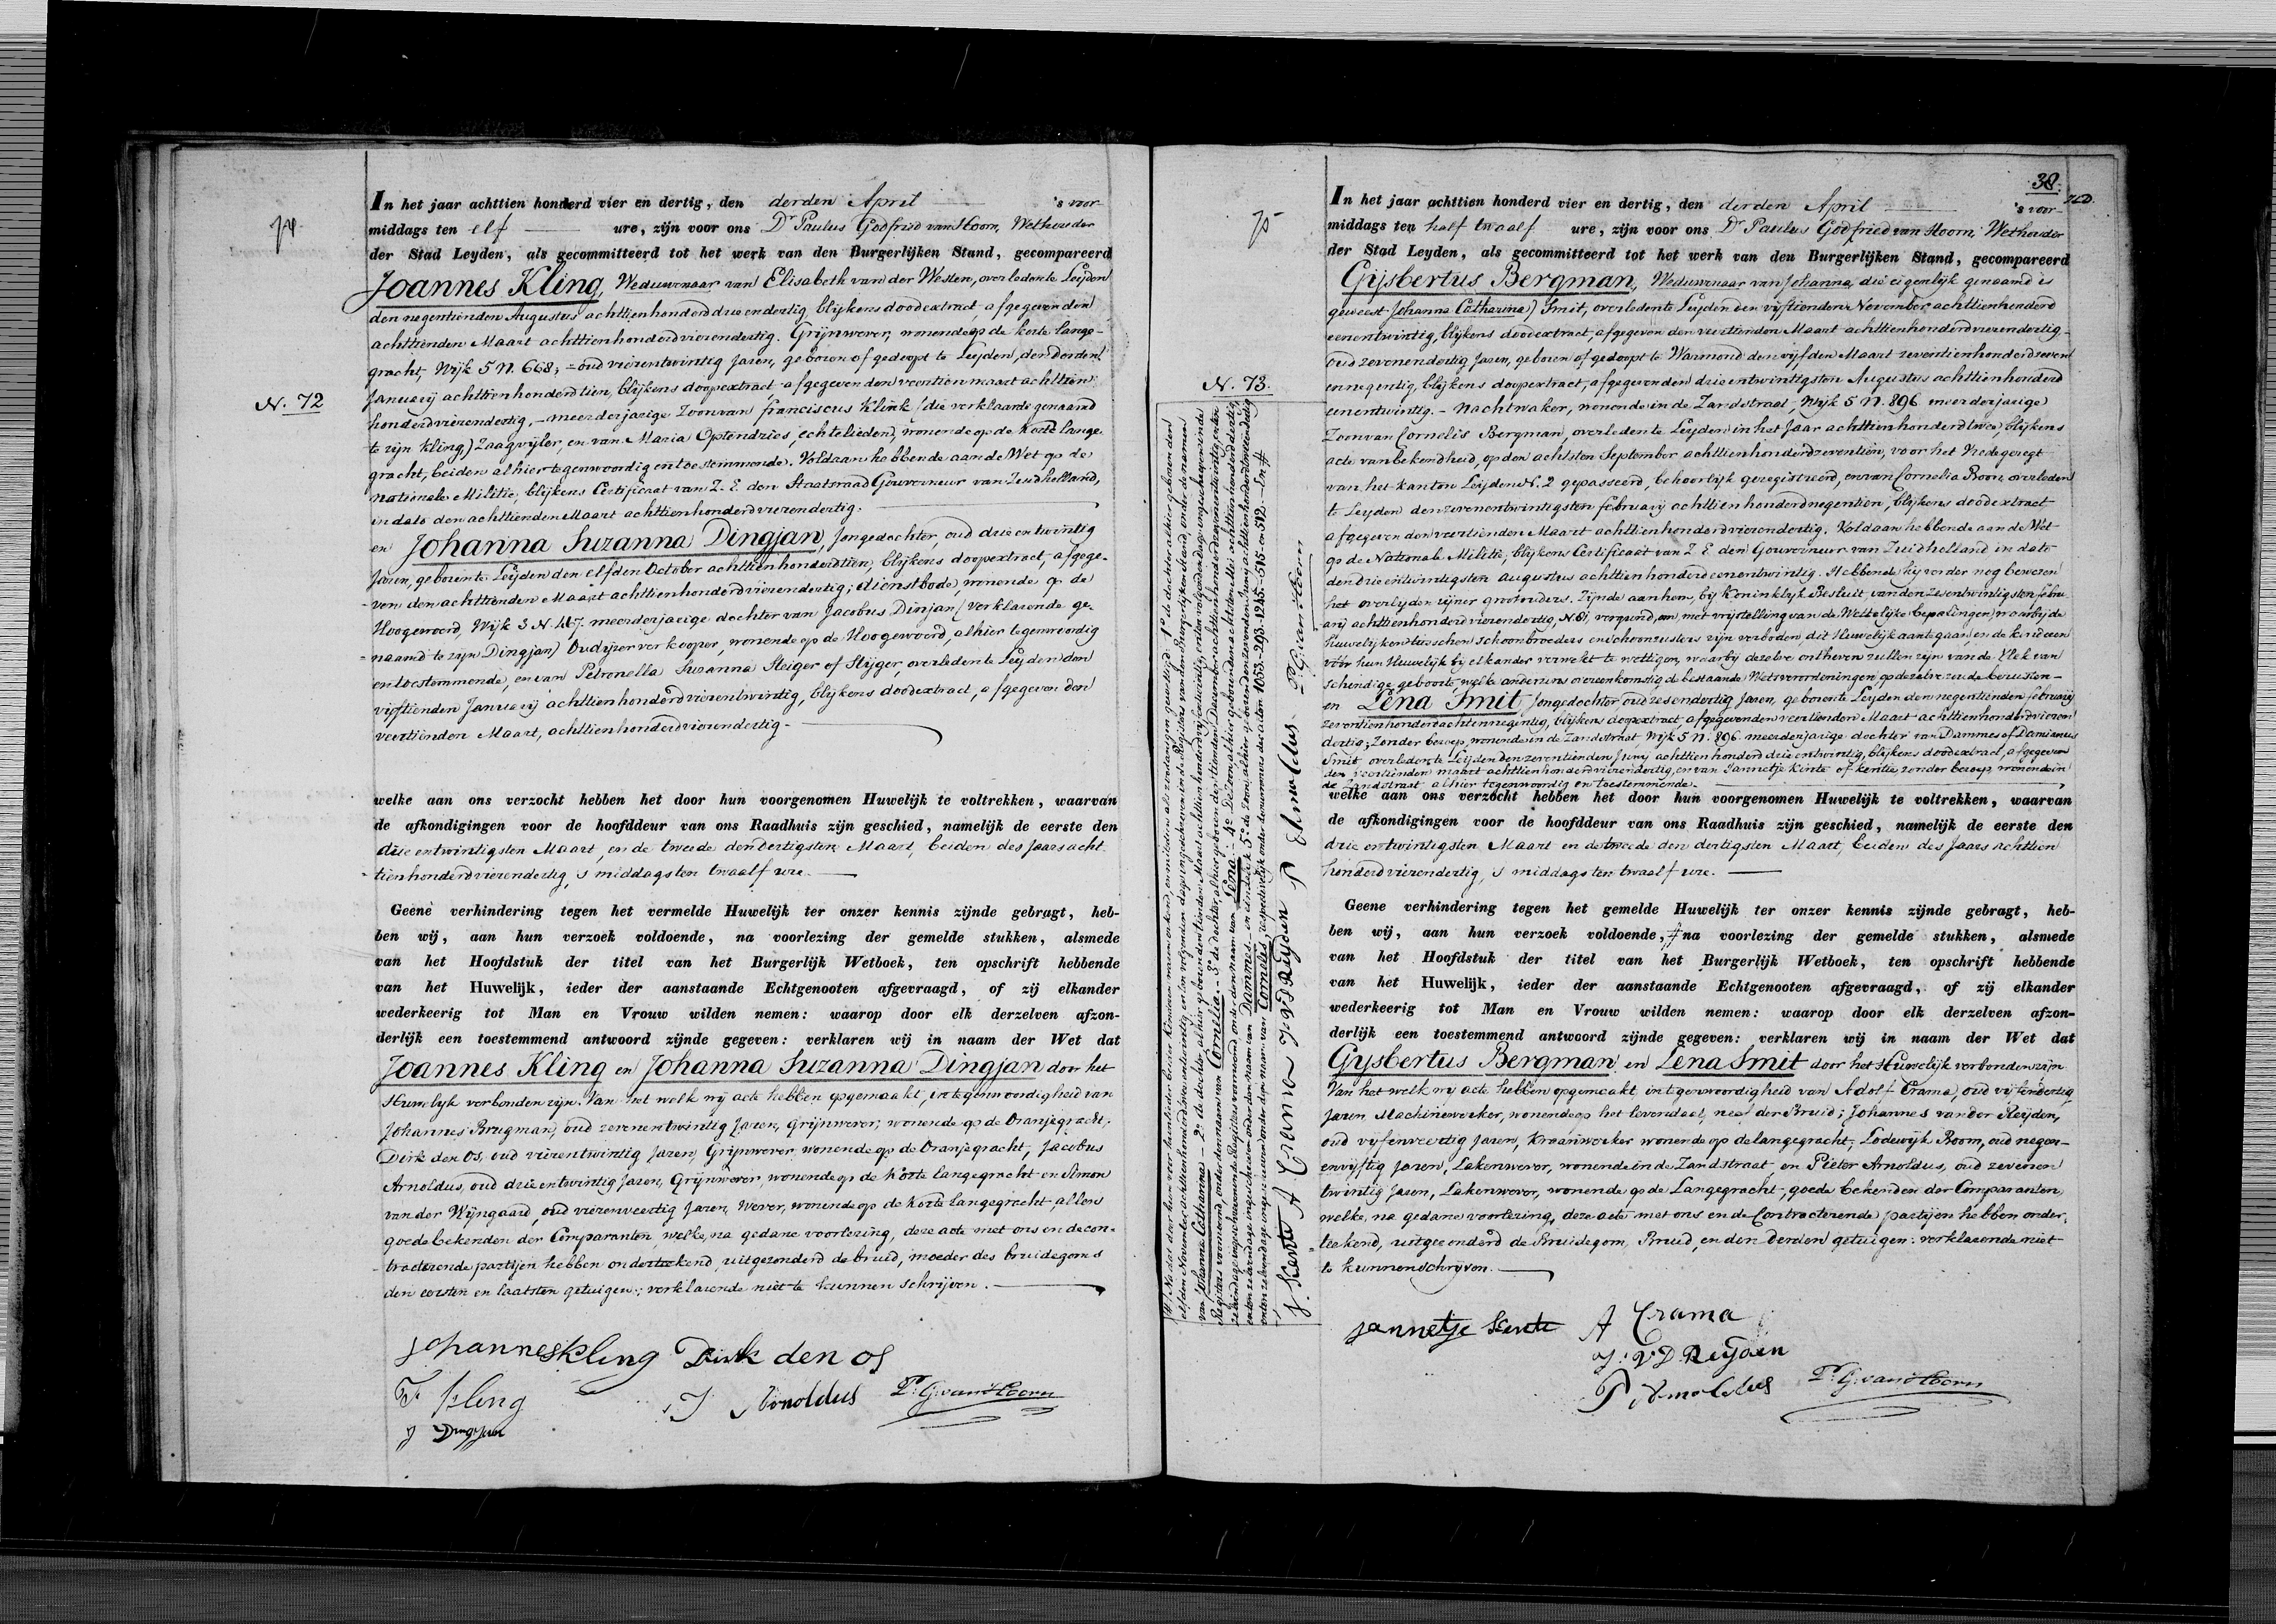 74.
N. 72
In het jaar achttien honderd vier en dertig, den derden April 's voor
middags ten elf ure, zijn voor ons Dr Paulus Godfried van Hoorn, Wethouder
der Stad Leyden, als gecommitteerd tot het werk van den Burgerlijken Stand, gecompareerd
Joannes Kling, Weduwenaar van Elisabeth van der Westen, overleden te Leyden
den negentienden Augustus achttienhonderd drie en dertig, blijkens doodextract, afgegeven den
achttienden Maart achttienhonderdvierendertig. Grijnwever, wonende op de korte lange-
gracht, Wijk 5 N. 668; = oud vierentwintig Jaren, geboren of gedoopt te Leyden, den derden
Januarij achttienhonderdtien, blijkens doopextract, afgegeven den veertien maart achttien
honderdvierendertig, - meerderjarige Zoon van franciscus Klink (die verklaarde genaamd
te zijn Kling) Zaagvijler, en van Maria Optendries, echtelieden, wonende op de Korte lange
gracht, beiden alhier tegenwoordig en toestemmende. Voldaan hebbende aan de Wet op de
Nationale Militie, blijkens Certificaat van Z. E. den Staatsraad Gouverneur van Zuidholland,
in dato den achttienden Maart achttienhonderdvierendertig.
en Johanna Suzanna Dingjan, Jongedochter, oud drie entwintig
Jaren, geboren te Leijden den elfden October achttienhonderdtien, blijkens doopextract, afgege-
ven den achttienden Maart achttienhonderdvierendertig; dienstbode, wonende op de
Hoogewoerd, Wijk 3 N. 147. meerderjarige dochter van Jacobus Dinjan (verklarende ge-
naamd te zijn Dingjan) Oudijzerverkooper, wonende op de Hoogewoerd, alhier tegenwoordig
en toestemmende, en van Petronella Susanna Steiger of Stijger, overleden te Leyden den
vijftienden Januarij achttienhonderdvierentwintig, blijkens doodextract, afgegeven den
veertienden Maart, achttienhonderdvierendertig.
welke aan ons verzocht hebben het door hun voorgenomen Huwelijk te voltrekken, waarvan
de afkondigingen voor de hoofddeur van ons Raadhuis zijn geschied, namelijk de eerste den
drie entwintigsten Maart, en de tweede den dertigsten Maart, beiden des Jaars acht-
tienhonderdvierendertig, 's middags ten twaalf ure.
Geene verhindering tegen het vermelde Huwelijk ter onzer kennis zijnde gebragt, heb-
ben wij, aan hun verzoek voldoende, na voorlezing der gemelde stukken, alsmede
van het Hoofdstuk der titel van het Burgerlijk Wetboek, ten opschrift hebbende
van het Huwelijk, ieder der aanstaande Echtgenooten afgevraagd, of zij elkander
wederkeerig tot Man en Vrouw wilden nemen: waarop door elk derzelven afzon-
derlijk een toestemmend antwoord zijnde gegeven: verklaren wij in naam der Wet dat
Joannes Kling en Johanna Suzanna Dingjan door het
Huwelyk verbonden zijn. Van het welk wij acte hebben opgemaakt, in tegenwoordigheid van
Johannes Brugman, oud zevenentwintig Jaren, Grijnwever, wonende op de Oranjegracht,
Dirk den Os, oud vierentwintig Jaren, Grijnwever, wonende op de Oranjegracht, Jacobus
Arnoldus, oud drie entwintig Jaren, Grijnwever, wonende op de Korte langegracht en Simon
van der Wijngaard, oud vierenveertig Jaren, Wever, wonende op de Korte langegracht, allen
goede bekenden der Comparanten, welke, na gedane voorlezing, deze acte met ons en de con-
tracterende partijen hebben onderteekend, uitgezonderd de bruid, moeder des bruidegoms
den eersten en laatsten getuigen; verklarende niet te kunnen schrijven.
Johannes Kling Dirk den os
F Kling J Arnoldus P. G. van Hoorn
J Dingjan
38.
75
N. 73.
In het jaar achttien honderd vier en dertig, den derden April 's voor-
middags ten half twaalf ure, zijn voor ons Dr Paulus Godfried van Hoorn, Wethouder
der Stad Leyden, als gecommitteerd tot het werk van den Burgerlijken Stand, gecompareerd
Gijsbertus Bergman, Weduwenaar van Johanna, die eigenlijk genaamd is
geweest Johanna Catharina) Smit, overleden te Leyden den vijftienden November achttienhonderd
eenentwintig, blijkens doodextract, afgegeven den veertienden Maart achttienhonderdvierendertig-
oud zevenendertig Jaren, geboren of gedoopt te Warmond den vijfden Maart zeventienhonderdzeven
ennegentig, blijkens doopextract, afgegeven den drie entwintigsten Augustus achttienhonderd
eenentwintig. - Nachtwaker, wonende in de Zandstraat, Wijk 5 N. 896 meerderjarige
Zoon van Cornelis Bergman, overleden te Leyden in het Jaar achttienhonderdtwee, blijkens
acte van bekendheid, op den achtsten September achttienhonderdzeventien, voor het Vredegeregt
van het kanton Leyden N. 2 gepasseerd, behoorlijk geregistreerd, en van Cornelia Boon, overleden
te Leyden den zevenentwintigsten february achttienhonderdnegentien, blijkens doodextract
afgegeven den veertienden Maart achttienhonderdvierendertig. Voldaan hebbende aan de Wet
op de Nationale Militie, blijkens Certificaat van Z. E. den Gouverneur van Zuidholland in dato
den drie entwintigsten augustus achttienhonderdeenentwintig. Hebbende hij verder nog bewezen
het overlyden zijner grootouders. Zijnde aan hem, bij Koninklijk Besluit van den zesentwintigsten febru-
arij achttienhonderdvierendertig, N. 61, vergund, om, met vrijstelling van de Wettelijke bepalingen, waarbij de
Huwelijken tusschen schoonbroeders en schoonzusters zijn verboden, dit Huwelijk aantegaan, en de kinderen
voor hun Huwelijk bij elkander verwekt te wettigen, waarbij dezelve ontheven zullen zijn van de Vlek van
schandige geboorte, welke anderszins overeenkomstig de bestaande Wetsverordeningen op dezelve zoude berusten-
en Lena Smit, Jongedochter, oud zesendertig Jaren, geboren te Leyden den negentienden february
zeventienhonderdachtennegentig, blijkens doopextract, afgegeven den veertienden Maart achttienhonderdvieren
dertig; Zonder beroep, wonende in de Zandstraat Wijk 5 N. 896. meerderjarige dochter van Dammes of Damianus
Smit, overleden te Leijden den zeventienden Juny achttienhonderd drie entwintig, blijkens doodextract, afgegeven
den veertienden maart achttienhonderdvierendertig, en van Jannetje Kinte of Kentie, zonder beroep, wonende in
de Zandstraat alhier tegenwoordig en toestemmende.
welke aan ons verzocht hebben het door hun voorgenomen Huwelijk te voltrekken, waarvan
de afkondigingen voor de hoofddeur van ons Raadhuis zijn geschied, namelijk de eerste den
drie entwintigsten Maart en de tweede den dertigsten Maart, beiden des Jaars achttien
honderdvierendertig, 's middags ten twaalf ure.
Geene verhindering tegen het gemelde Huwelijk ter onzer kennis zijnde gebragt, heb-
ben wij, aan hun verzoek voldoende, # na voorlezing der gemelde stukken, alsmede
van het Hoofdstuk der titel van het Burgerlijk Wetboek, ten opschrift hebbende
van het Huwelijk, ieder der aanstaande Echtgenooten afgevraagd, of zij elkander
wederkeerig tot Man en Vrouw wilden nemen: waarop door elk derzelven afzon-
derlijk een toestemmend antwoord zijnde gegeven: verklaren wij in naam der Wet dat
Gysbertus Bergman en Lena Smit door het Huwelijk verbonden zijn
Van het welk wij acte hebben opgemaakt, in tegenwoordigheid van Adolf Crama, oud vijfendertig
Jaren, Machinewerker, wonende op het levendaal, neef der Bruid; Johannes van der Reijden,
oud vijfenveertig Jaren, Kraanwerker wonende op de langegracht, Lodewijk Boom, oud negen-
envijftig Jaren, Lakenwever, wonende in de Zandstraat, en Pieter Arnoldus, oud zevenen
twintig Jaren, Lakenwever, wonende op de Langegracht, goede bekenden der Comparanten,
welke, na gedane voorlezing, deze acte met ons en de Contracterende partijen hebben onder-
teekend, uitgezonderd de Bruidegom, Bruid, en den derden getuigen: verklarende niet
te kunnen schrijven.
Jannetje Kente A Crama
J: V D Reyden
P Arnoldus P. G. van Hoorn
van Johanna Catharina - 2o de dochter, alhier geboren den
Cornelia - 3o de dochter, alhier geboren den tienden December
Lena - 4o De Zoon, alhier geboren den
Dammes - en eindelijk 5o de Zoon, alhier geboren den
Cornelis, respectivelijk onder de nummers der acten 1053-293-1245-515 en 512 - En #
J. Kente A Crama J. V D Reyden P Arnoldus P. G. van Hoorn